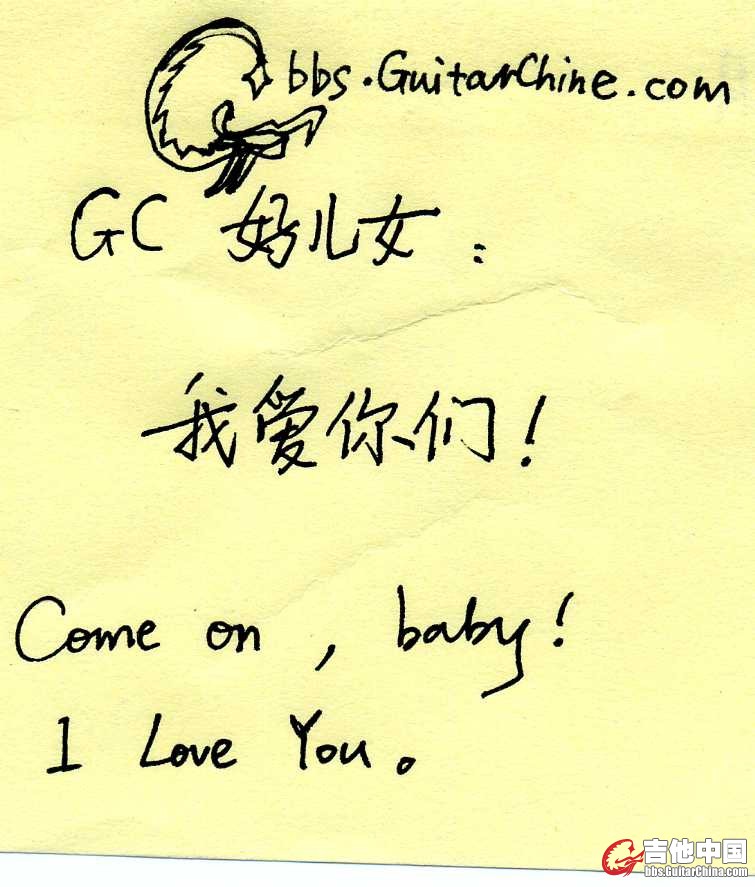 bbs.GuitarChine.com
GC 好儿女：
我爱你们！
Come on , baby!
I Love You。
吉他中国
bbs.GuitarChina.com